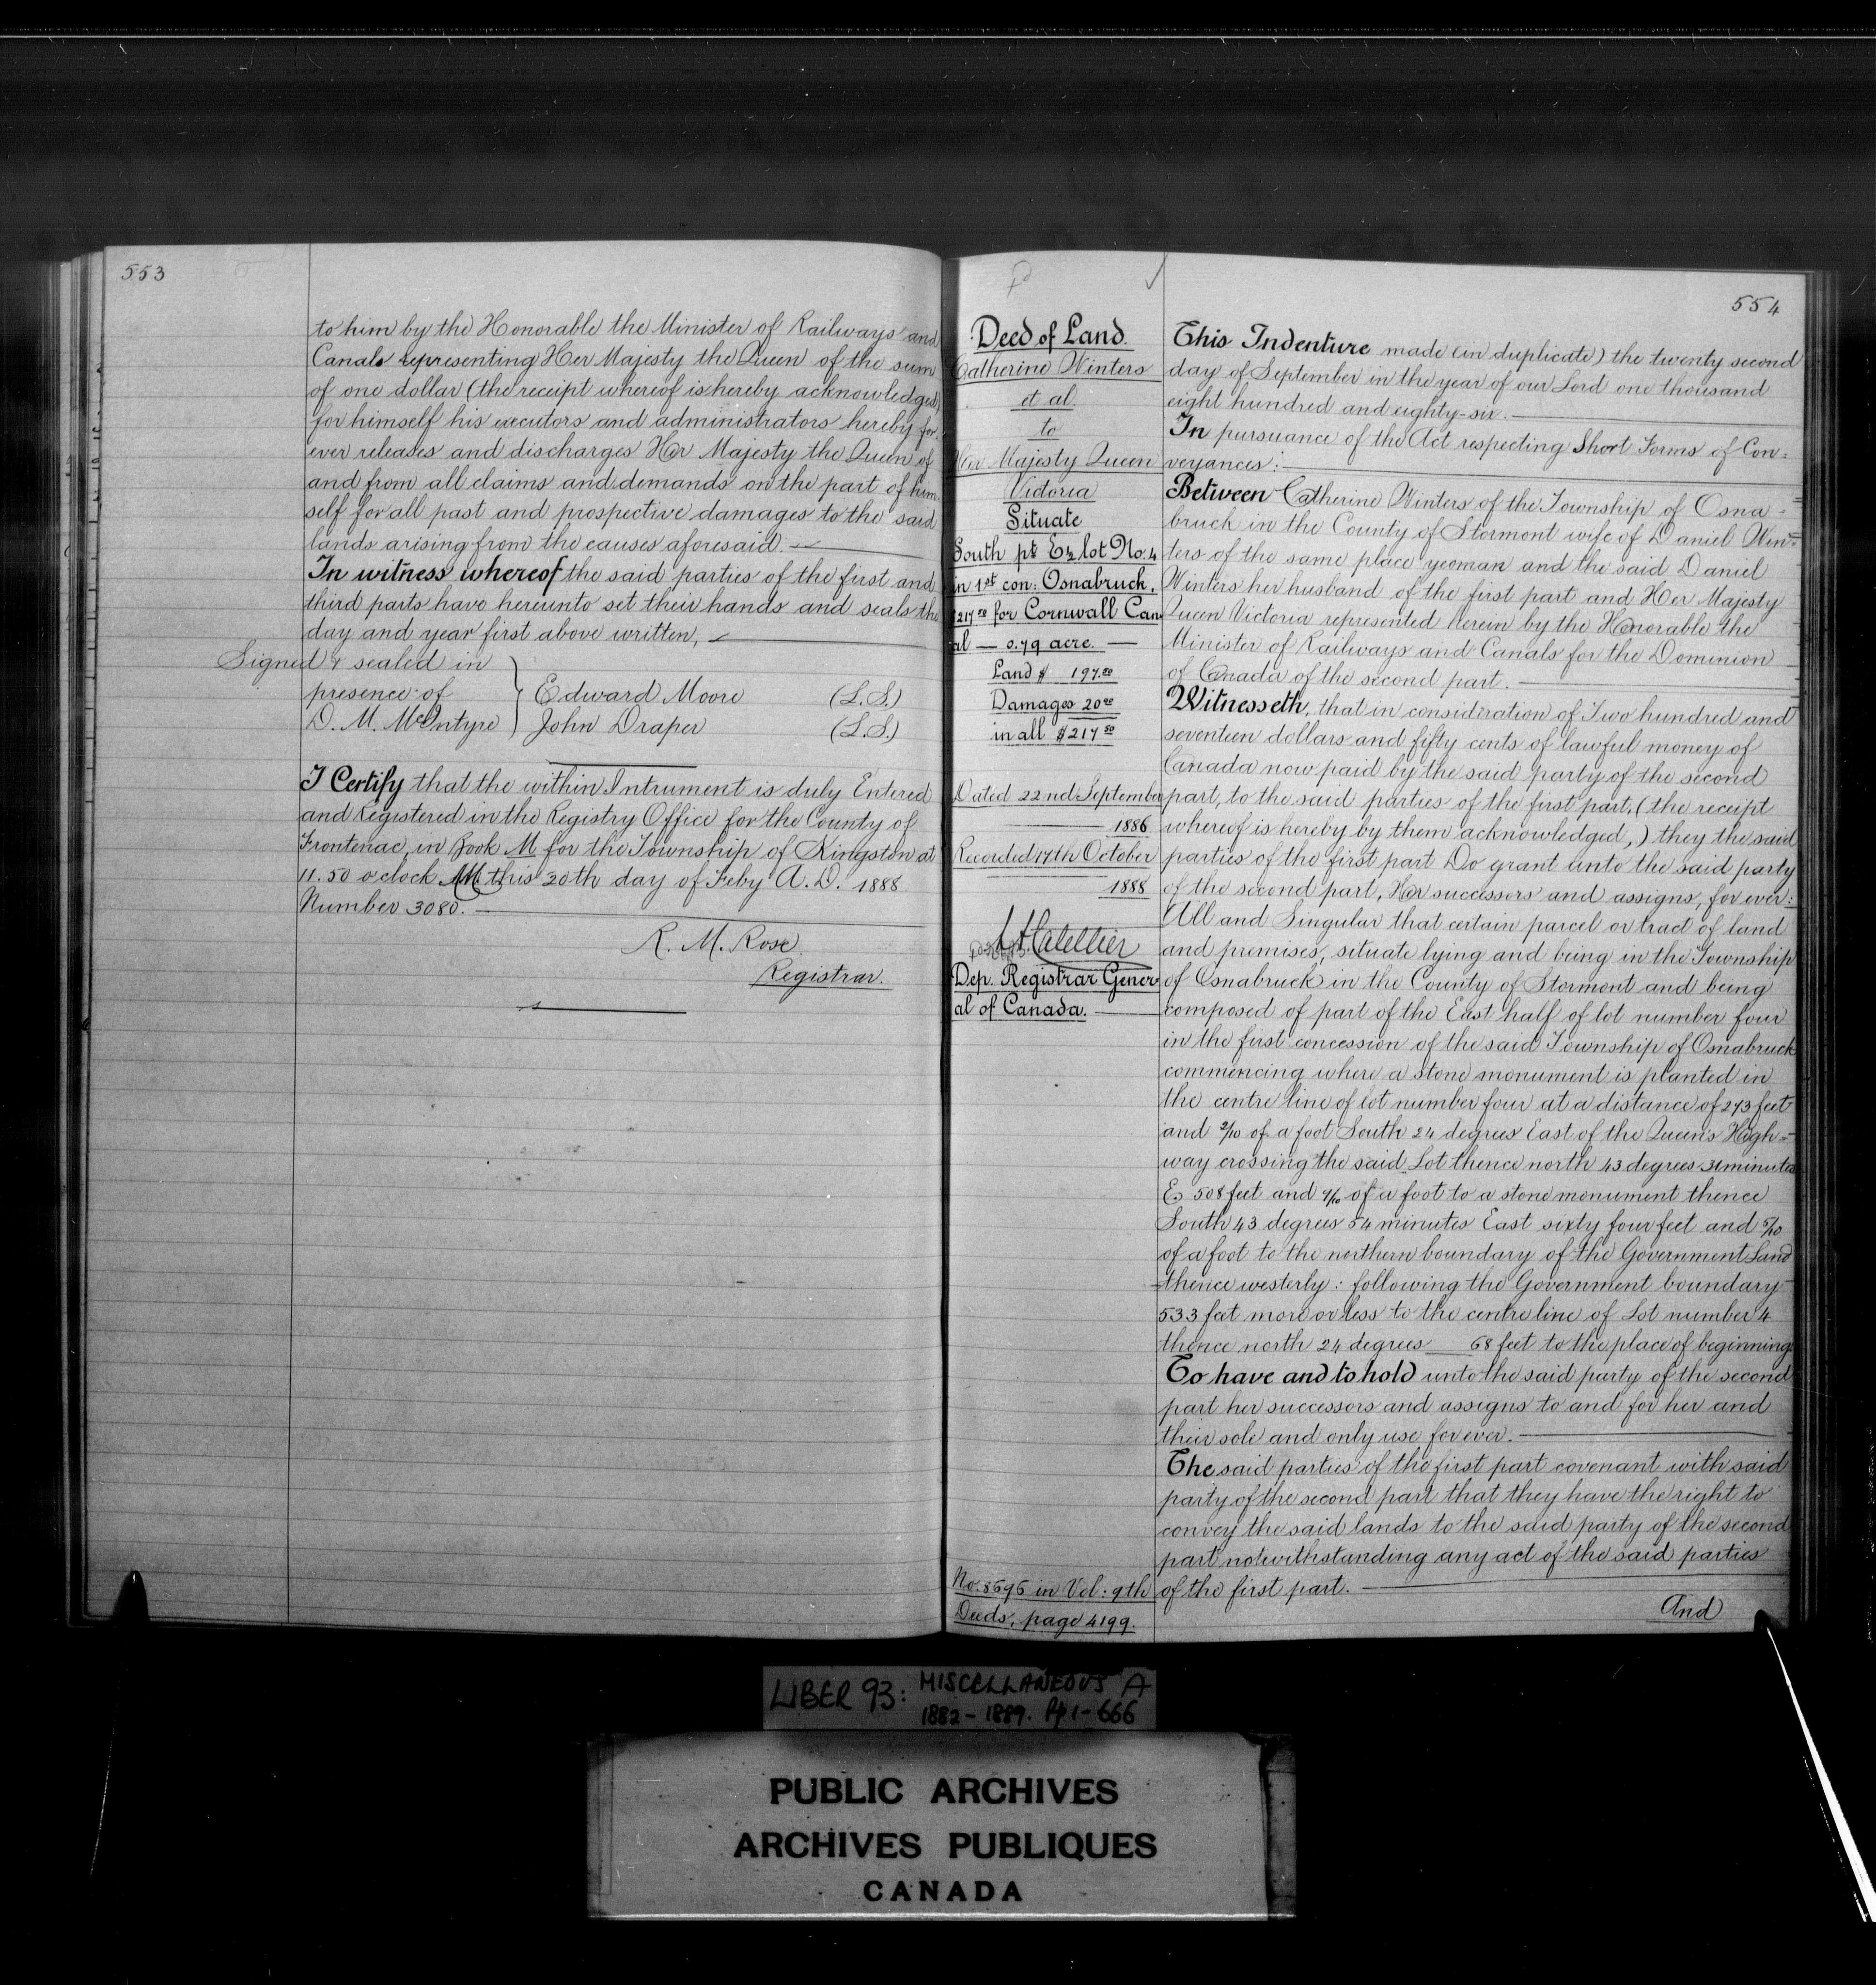 553
to him by the Honorable the Minister of Railways and
Canals representing Her Majesty the Queen of the sum
of one dollar (the receipt whereof is hereby acknowledged)
for himself his executors and administrators hereby for
ever releases and discharges Her Majesty the Queen of
and from all claims and demands on the part of him
self for all past and prospective damages to the said
lands arising from the causes aforesaid.
In witness whereof the said parties of the first and
third parts have hereunto set their hands and seals the
day and year first above written,
Signed & sealed in
presence of
Edward Moore (L.S.)
D. M. McIntyre John Draper (L.S.)
I Certify that the within Intrument is duly Entered
and Registered in the Registry Office for the County of
Frontenac, in Book M for the Township of Kingston at
11.50 o'clock AM this 20th day of Feby A.D. 1888
Number 3080.
R. M. Rose
Registrar.
554
Deed of Land.
Catherine Winters
et al.
to
Her Majesty Queen
Victoria
Situate
South pt E½ lot No. 4
in 1st con: Osnabruck,
$217.50 for Cornwall Can
al — 0.79 acre. —
Land $ 197.50
Damages 20.00
in all $217.50
Dated 22nd September
1886
Recorded 17th October
1888
Dep. Registrar Gener
al of Canada.
No. 8695 in Vol: 9th
Deeds, page 4199.
This Indenture made (in duplicate) the twenty second
day of September in the year of our Lord one thousand
eight hundred and eighty-six.
In pursuance of the Act respecting Short Forms of Con=
veyances:
Between Catherine Winters of the Township of Osna-
bruck in the County of Stormont wife of Daniel Win=
ters of the same place yeoman and the said Daniel
Winters her husband of the first part and Her Majesty
Queen Victoria represented herein by the Honorable the
Minister of Railways and Canals for the Dominion
of Canada of the second part.
Witnesseth, that in consideration of Two hundred and
seventeen dollars and fifty cents of lawful money of
Canada now paid by the said party of the second
part, to the said parties of the first part, (the receipt
whereof is hereby by them acknowledged,) they the said
parties of the first part Do grant unto the said party
of the second part, Her successors and assigns, for ever:
All and Singular that certain parcel or tract of land
and premises, situate lying and being in the Township
of Osnabruck in the County of Stormont and being
composed of part of the East half of lot number four
in the first concession of the said Township of Osnabruck
commencing where a stone monument is planted in
the centre line of lot number four at a distance of 273 feet
and 2/10 of a foot South 24 degrees East of the Queen's High=
way crossing the said Lot thence north 43 degrees 31 minutes
E 508 feet and of a foot to a stone monument thence
South 43 degrees 54 minutes East sixty four feet and 5/10
of a foot to the northern boundary of the Government Land
thence westerly: following the Government boundary
533 feet more or less to the centre line of Lot number 4
thence north 24 degrees 68 feet to the place of beginning
To have and to hold unto the said party of the second
part her successors and assigns to and for her and
their sole and only use for ever.
The said parties of the first part covenant with said
party of the second part that they have the right to
convey the said lands to the said party of the second
part notwithstanding any act of the said parties
of the first part.
And
LIBER 93: MISCELLANEOUS A
1882-1889. Pp 1-666
PUBLIC ARCHIVES
ARCHIVES PUBLIQUES
CANADA